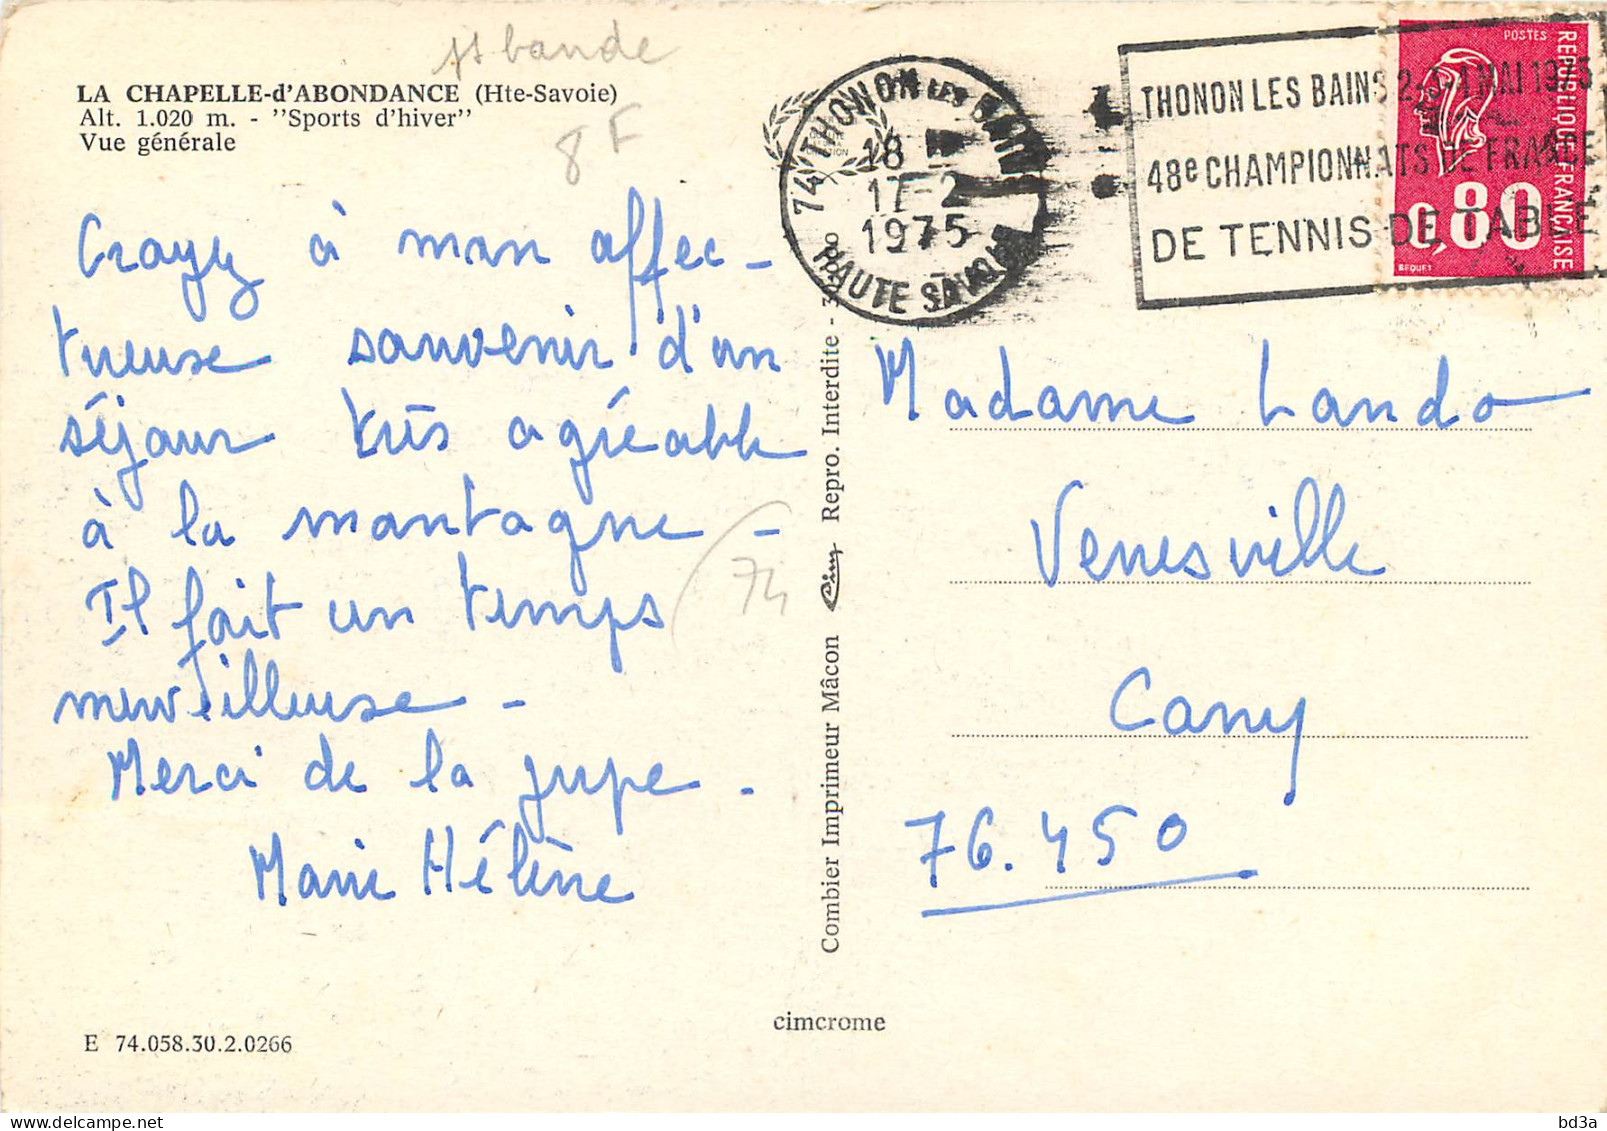 ss bande
LA CHAPELLE-d'ABONDANCE (Hte-Savoie)
Alt. 1.020 m. - "Sports d'hiver"
Vue générale
8 F
Croyez à mon affec-
tueuse souvenir d'un
séjour très agréable
à la montagne -
Il fait un temps
merveilleuse -
Merci de la jupe -
Marie Hélène
74
E 74.058.30.2.0266
Combier Imprimeur Mâcon Cim Repro. Interdite -
cimcrome
74 THONON LES BAINS
18
17-2
1975
HAUTE SAVOIE
THONON LES BAINS 2-3-4 MAI 1975
48e CHAMPIONNATS DE FRANCE
DE TENNIS DE TABLE
POSTES
REPUBLIQUE FRANÇAISE
0,80
BEQUET
Madame Lando
Venesville
Cany
76.450
delcampe.net
bd3a